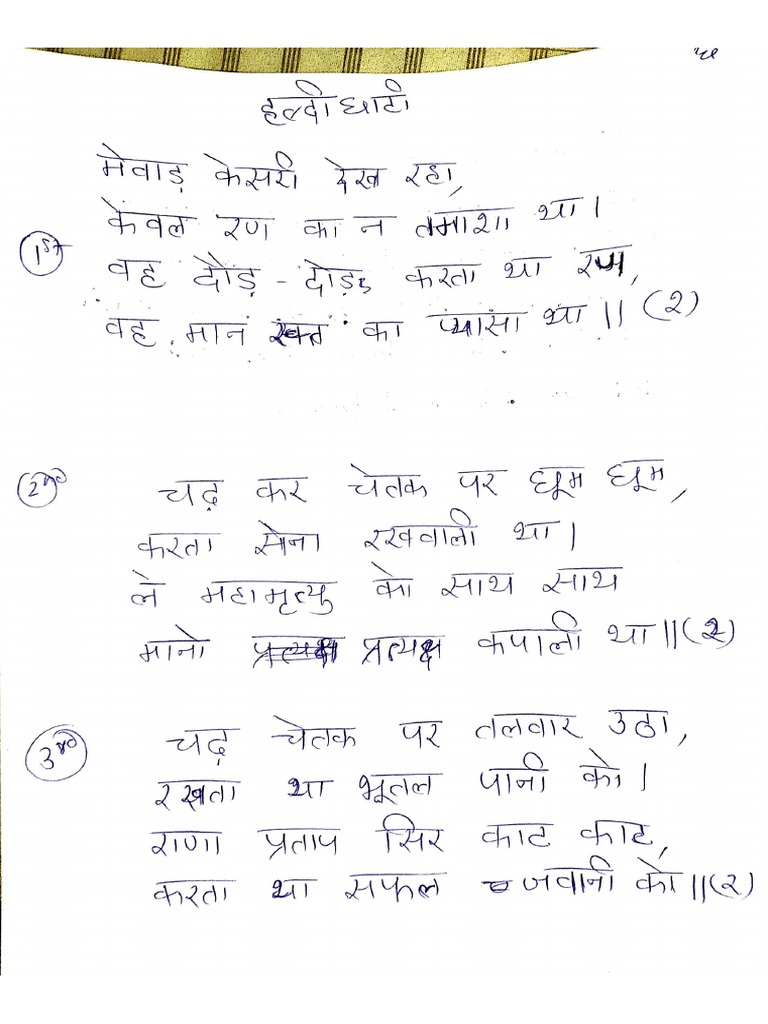 हल्दीघाटी
मेवाड़ केसरी देख रहा,
केवल रण का न तमाशा था।
1st
वह दौड़ - दौड़ करता था रण,
वह मान रक्त का प्यासा था॥ (२)
2nd चढ़ कर चेतक पर घूम घूम,
करता सेना रखवाली था।
ले महामृत्यु को साथ साथ
मानो प्रत्यक्ष कपाली था॥ (२)
3rd चढ़ चेतक पर तलवार उठा,
रखता था भूतल पानी को।
राणा प्रताप सिर काट काट,
करता था सफल जवानी को॥ (२)